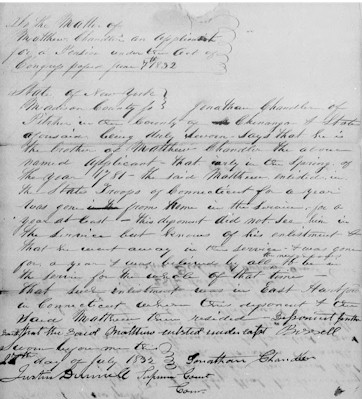 In the Matter of
Matthew Chandler an Applicant
for a Pension under the Act of
Congress passed June 7th 1832
State of New York
Madison County ss Jonathan Chandler of
Pitcher in the County of Chenango & State
aforesaid being duly sworn says that he is
the brother of Matthew Chandler the above
named Applicant - that early in the Spring of
the year 1781 - the said Matthew enlisted in
the State Troops of Connecticut for a year
was gone from home in the service for a
year at least - this deponent did not see him in
the service but knows of his enlistment &
that he went away in the service & was gone
for a year & was believed by all to be in
the service for the whole of that time -
that said enlistment was in East Hartford
in Connecticut where this deponent & the
said Matthew then resided Deponent further
that the said Matthew enlisted under Capt Bissell
Sworn before me the
day of July 1832 Jonathan Chandler
Justin Dwinell Supreme Court
Com.